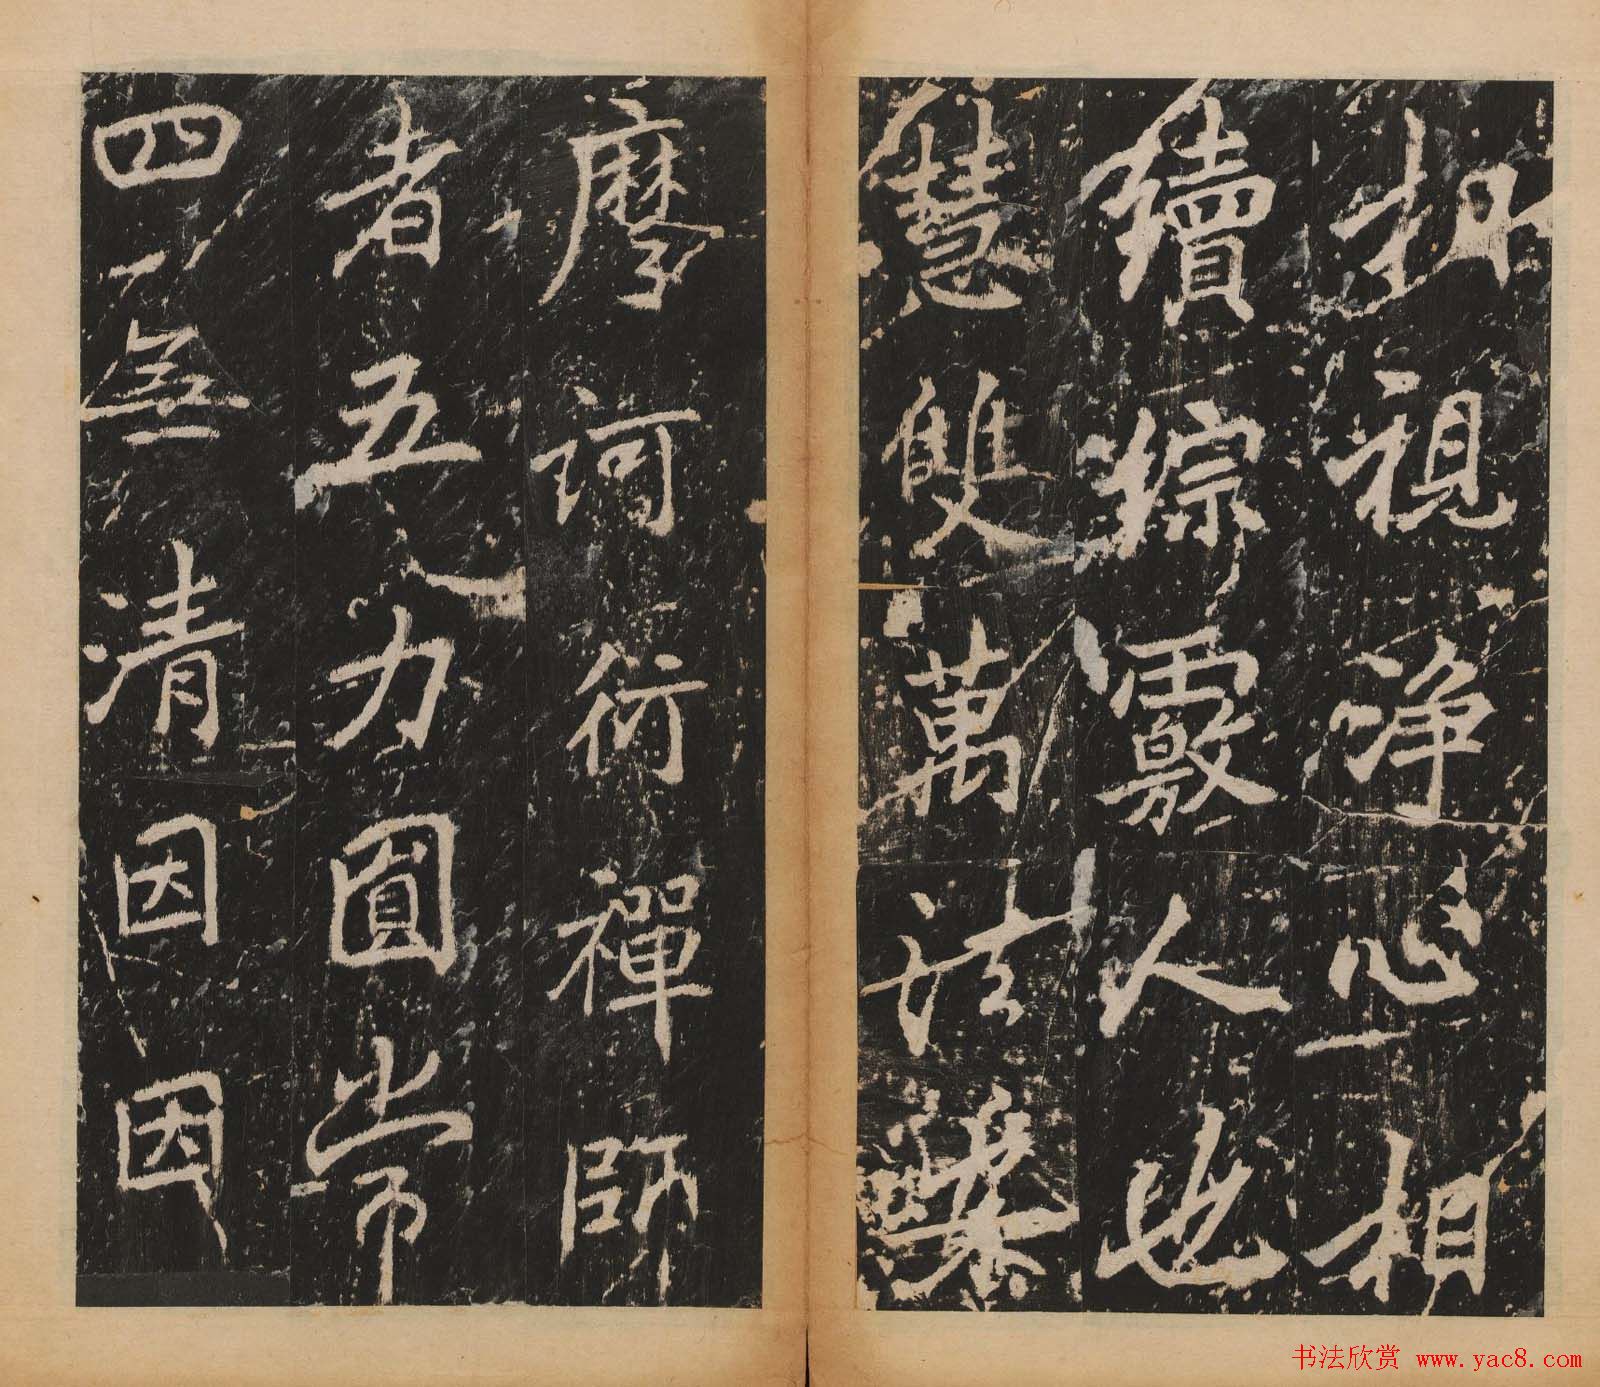 扣視淨心相
續綜覈人也
慧雙萬法
摩訶衍禪師
者五力圓常
四無清因因
书法欣赏 www.yac8.com